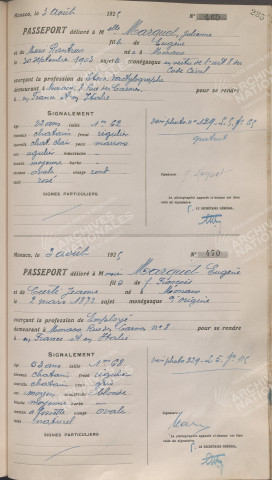 285
Monaco, le 3 août 1925 N° 469
PASSEPORT délivré à Melle Marquet, Julienne
fille de Eugène
et de Marie Pantras né à Monaco
le 30 septembre 1903 sujet monégasque en vertu de l'art 8 du
Code Civil
exerçant la profession de Sténo dactylographe
demeurant à Monaco, Rue des Carmes pour se rendre
en France et en Italie
SIGNALEMENT
âge 22 ans taille 1m 62
cheveux chatain front régulier
sourcils chat. clair yeux marrons
nez
barbe
menton ovale visage rond
teint rosé
SIGNES PARTICULIERS
gratuit
La photographie apposée ci-dessus est bien
celle du signataire.
LE SECRÉTAIRE GÉNÉRAL,
Monaco, le 3 août 1925 N° 470
PASSEPORT délivré à Monsieur Marquet Eugène
fils de François
et de Jeanne né à Monaco
le 2 mars 1872 sujet monégasque d'origine
exerçant la profession de Employé
demeurant à Monaco Rue des Carmes n° 8 pour se rendre
en France et en Italie
SIGNALEMENT
âge 53 ans taille 1m 68
cheveux chatain front régulier
sourcils chatain yeux gris
nez moyen moustache blonde
bouche moyenne barbe
menton à fossette visage ovale
teint naturel
SIGNES PARTICULIERS
Signature :
La photographie apposée ci-dessus est bien
celle du signataire.
LE SECRÉTAIRE GÉNÉRAL,
ARCHIVES
NATIONALES